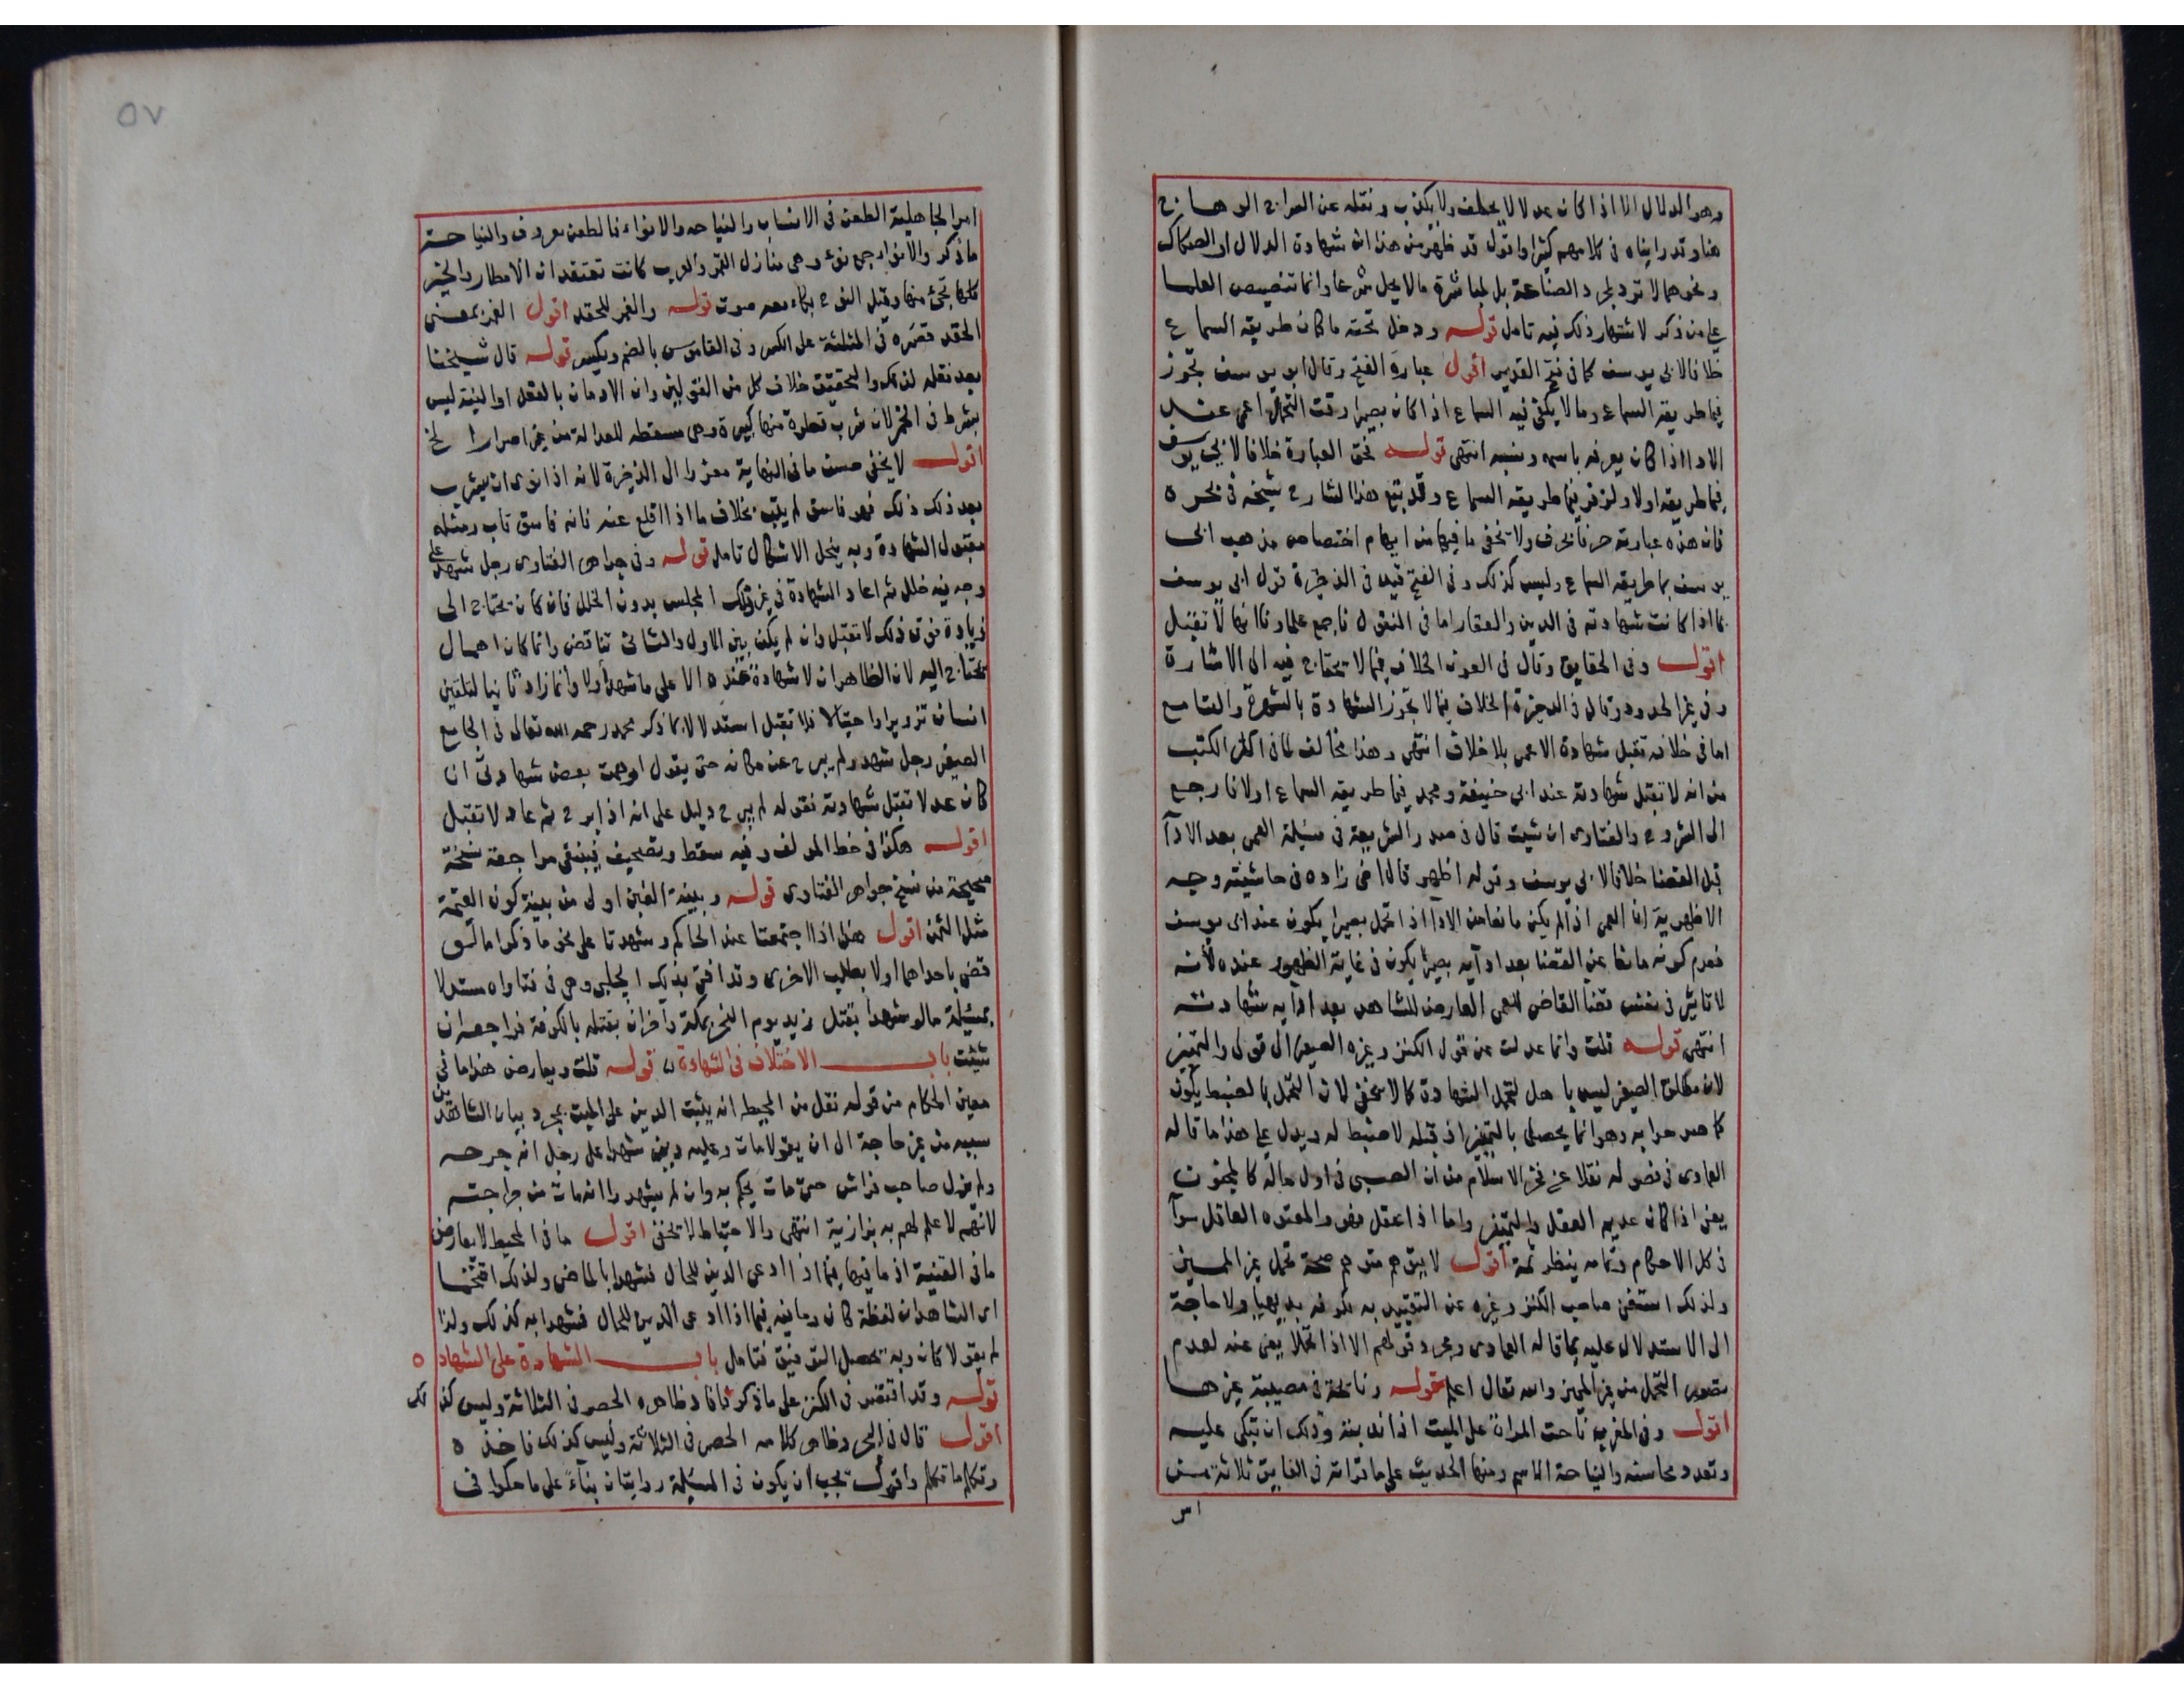 وهو الدلال الا اذا كان عدلا لا يحلف ولا يكذب ونقله عن السراج الوهاج
هنا وقد رايناه فى كلامهم كثيرا واقول قد ظهر من هذا ان شهادة الدلال او الصكاك
ونحوهما لا ترد لمجرد الصناعة بل لمباشرة مالا يحل شرعا وانما تنصيص العلما
على من ذكر لاشتهار ذلك فيه تامل قوله ودخل تحته ما كان طريقه السماع
خلافا لابى يوسف كما فى فتح القدير اقول عبارة الفتح وقال ابو يوسف تجوز
فيما طريقه السماع وما لا يكفى فيه السماع اذا كان بصيرا وقت التحمل اعمى عند
الادا اذا كان يعرفه باسمه ونسبه انتهى قوله نحق العبارة خلافا لابى يوسف
فيما طريقه اولا ولزفر فيما طريقه السماع وقد تبع هذا الشارح شيخه فى بحره
فان هذه عبارته حرفا بحرف ولا يخفى ما فيها من ايهام اختصاص مذهب ابى
يوسف بما طريقه السماع وليس كذلك وفى الفتح قيد فى الذخيرة قول ابى يوسف
بما اذا كانت شهادته فى الدين والعقار اما فى المنقول فاجمع علماونا انها لا تقبل
اقول وفى الحقايق وقال فى العون الخلاف فيما لا يحتاج فيه الى الاشارة
وفى غير الحدود وقال فى الذخيرة الخلاف فيما لا تجوز الشهادة بالشهرة والتسامع
اما فى خلافه تقبل شهادة الاعمى بلا خلاف انتهى وهذا مخالف لما فى اكثر الكتب
من انه لا تقبل شهادته عند ابى حنيفة ومحمد فيما طريقه السماع اولا فارجع
الى الشروح والفتاوى ان شيت قال فى صدر الشريعة فى مسئلة العمى بعد الادآ
قبل القضا خلافا لابى يوسف وقوله اظهر قال اخى زاده فى حاشيته وجه
الاظهرية ان العمى اذا لم يكن مانعا من الادآ اذا تحمل بصيرا يكون عند ابى يوسف
فعدم كونه مانعا عن القضا بعد ادآيه بصيرا يكون فى غاية الظهور عنده لانه
لا تاثير فى نفس قضا القاضى للعمى العارض للشاهد بعد ادآيه شهادته
انتهى قوله قلت وانما عدلت عن قول الكنز وغيره الصغير الى قولى والتمييز
لان مطلق الصغير ليس باهل لتحمل الشهادة كما لا يخفى لان التحمل بالضبط يكون
كما صرحوا به وهو انما يحصل بالتمييز اذ قبله لا ضبط له ويدل على هذا ما قاله
العمادى فى فصوله نقلا عن فخر الاسلام من ان الصبى فى اول حاله كالمجنون
يعنى اذا كان عديم العقل والتمييز واما اذا عقل فهو والمعتوه العاقل سوآ
فى كل الاحكام وتمامه ينظر ثمة اقول لا يتوهم متوهم صحة تحمل غير المميز
ولذلك استغنى صاحب الكنز وغيره عن التقييد به لكونه بديهيا ولا حاجة
الى الاستدلال عليه بما قاله العمادى ومجرد قولهم الا اذا تحملا يغنى عنه لعدم
تصور التحمل من غير المميز والله تعالى اعلم قوله ونايحة فى مصيبة غيرها
اقول وفى المغرب ناحت المراة على الميت اذا ندبته وذلك ان تبكى عليه
وتعدد محاسنه والنياحة الاسم ومنها الحديث على ما قراته فى الفايق ثلاثة من
امر
٥٧
امر الجاهلية الطعن فى الانساب والنياحة والانواء فالطعن معروف والنياحة
ما ذكر والانوا جمع نوء وهى منازل القمر والعرب كانت تعتقد ان الامطار والخير
كلها تجئ منها وقيل النوح بكاء معه صوت قوله والغمر للحقد اقول الغمر بمعنى
الحقد قصره فى المثلثة على الكسر وفى القاموس بالضم ويكسر قوله قال شيخنا
بعد نقله لذلك والتحقيق خلاف كل من القولين وان الادمان بالفعل او النية ليس
بشرط فى الخمر لان شرب قطرة منها كبيرة وهى مسقطه للعدالة من غير اصرار الخ
اقول لا يخفى حسن ما فى النهاية معزوا الى الذخيرة لانه اذا نوى ان يشرب
بعد ذلك فهو فاسق لم يتب بخلاف ما اذا اقلع عنه فانه فاسق تاب ومثله
مقبول الشهادة وبه ينحل الاشكال تامل قوله وفى جواهر الفتاوى رجل شهد على
وجه فيه خلل ثم اعاد الشهادة فى غير ذلك المجلس بدون الخلل فان كان يحتاج الى
زيادة فوق ذلك لا تقبل وان لم يكن بين الاول والثانى تناقض وانما كان اهمال
يحتاج اليه لان الظاهر ان لا شهادة عنده الا على ما شهد اولا وانما زاد ثانيا لتلقين
انسان تزويرا واحتيالا فلا تقبل استدلالا بما ذكر محمد رحمه الله تعالى فى الجامع
الصغير رجل شهد ولم يبرح عن مكانه حتى يقول اوهمت بعض شهادتى ان
كان عدلا تقبل شهادته فقوله لم يبرح دليل على انه اذا برح ثم عاد لا تقبل
اقول هكذا فى خط المولف وفيه سقط وتصحيف فينبغى مراجعة نسخة
صحيحة من نسخ جواهر الفتاوى قوله وبينة الغبن اولى من بينة كون القيمة
مثل الثمن اقول هذا اذا اجتمعتا عند الحاكم وشهدتا على نحو ما ذكر اما لو
قضى باحداهما اولا بطلب الاخرى وقد افتى بذلك الحلبى وهى فى فتاواه مستدلا
بمسئلة ما لو شهدا بقتل زيد يوم النحر بمكة وآخران بقتله بالكوفة فراجعه ان
شئت باب الاختلاف فى الشهادة قوله قلت ويعارض هذا ما فى
معين الحكام من قوله نقل من المحيط انه يثبت الدين على الميت بمجرد بيان الشاهدين
سببه من غير حاجة الى ان يقولا مات وعليه دين شهدا على رجل انه جرحه
ولم يزل صاحب فراش حتى مات يحكم به وان لم يشهدوا انه مات من جراحته
لانهم لا علم لهم به بزازية انتهى والاحتياط لا يخفى اقول ما فى المحيط لا يعارض
ما فى القنية اذ ما فيها فيما اذا ادعى الدين للحال فشهدا بالماضى ولذلك اقحما
اى الشاهدان لفظة كان وما فيه فيما اذا ادعى الدين للحال فشهدا به كذلك ولذا
لم يقولا كان وبه يحصل التوفيق فتامل باب الشهادة على الشهادة
قوله وقد اقتصر فى الكنز على ما ذكر ثانيا وظاهره الحصر فى الثلاثة وليس كذلك
اقول قال فى البحر وظاهر كلامه الحصر فى الثلاثة وليس كذلك فاخذه
وتكلم ما تكلم واقول يجب ان يكون فى المسئلة روايتان بناءً على ما حكوا فى